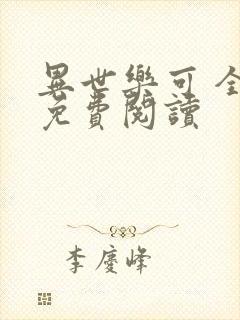 異世樂可 全
免費閱讀
李慶峰